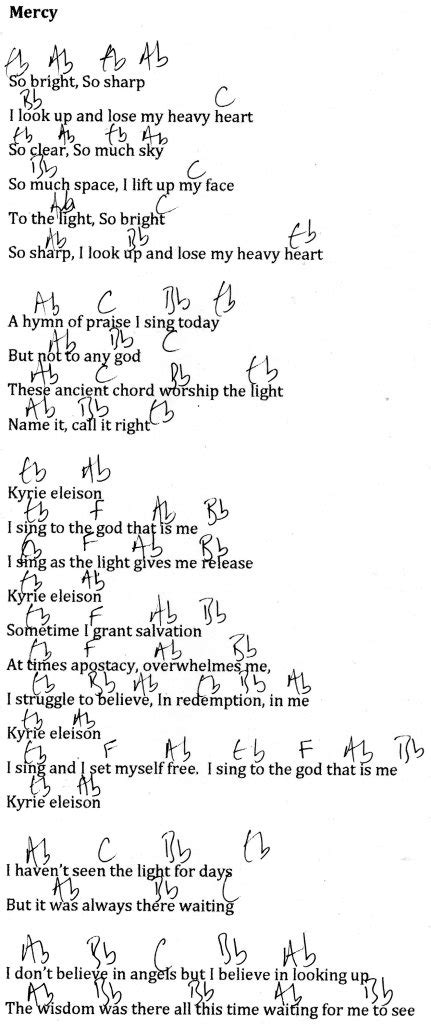 Mercy
Eb Ab Eb Ab
So bright, So sharp
Bb C
I look up and lose my heavy heart
Eb Ab Eb Ab
So clear, So much sky
Bb C
So much space, I lift up my face
Ab C
To the light, So bright
Ab Bb Eb
So sharp, I look up and lose my heavy heart
Ab C Bb Eb
A hymn of praise I sing today
Ab Bb C
But not to any god
Ab C Bb Eb
These ancient chord worship the light
Ab Bb Eb
Name it, call it right
Eb Ab
Kyrie eleison
Eb F Ab Bb
I sing to the god that is me
F Ab Bb
I sing as the light gives me release
Eb Ab
Kyrie eleison
Eb F Ab Bb
Sometime I grant salvation
Eb F Ab Bb
At times apostacy, overwhelmes me,
Eb Bb Ab Eb Bb Ab
I struggle to believe, In redemption, in me
Eb Ab
Kyrie eleison
Eb F Ab Eb F Ab Bb
I sing and I set myself free. I sing to the god that is me
Eb Ab
Kyrie eleison
Ab C Bb Eb
I haven't seen the light for days
Ab Bb C
But it was always there waiting
Ab Bb C Bb Ab
I don't believe in angels but I believe in looking up
Ab Bb Bb Ab Bb
The wisdom was there all this time waiting for me to see